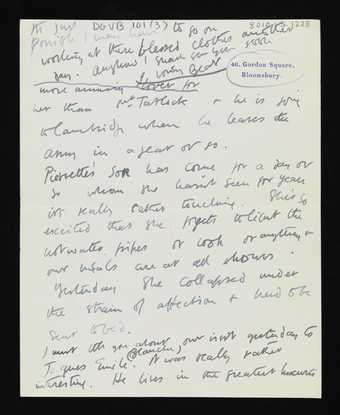 It is just
possible I may have to go on
working at these blessed clothes another
day. Anyhow I shall see you soon
Yr loving Bear
46, Gordon Square,
Bloomsbury.
more
her than Mrs Tatlock & he is going
to Cambridge when he leaves the
army in a year or so.
Pierrette's Son has come for a day or
so whom she hasn't seen for years
it's really rather touching. She's so
excited that she forgets to light the
hot water pipes or cook or anything &
our meals are at all hours.
Yesterday she collapsed under
the strain of affection & had to be
sent to bed.
I must tell you about our visit yesterday to
Jacques Emile Blanche, it was really rather
interesting. He lives in the greatest luxury